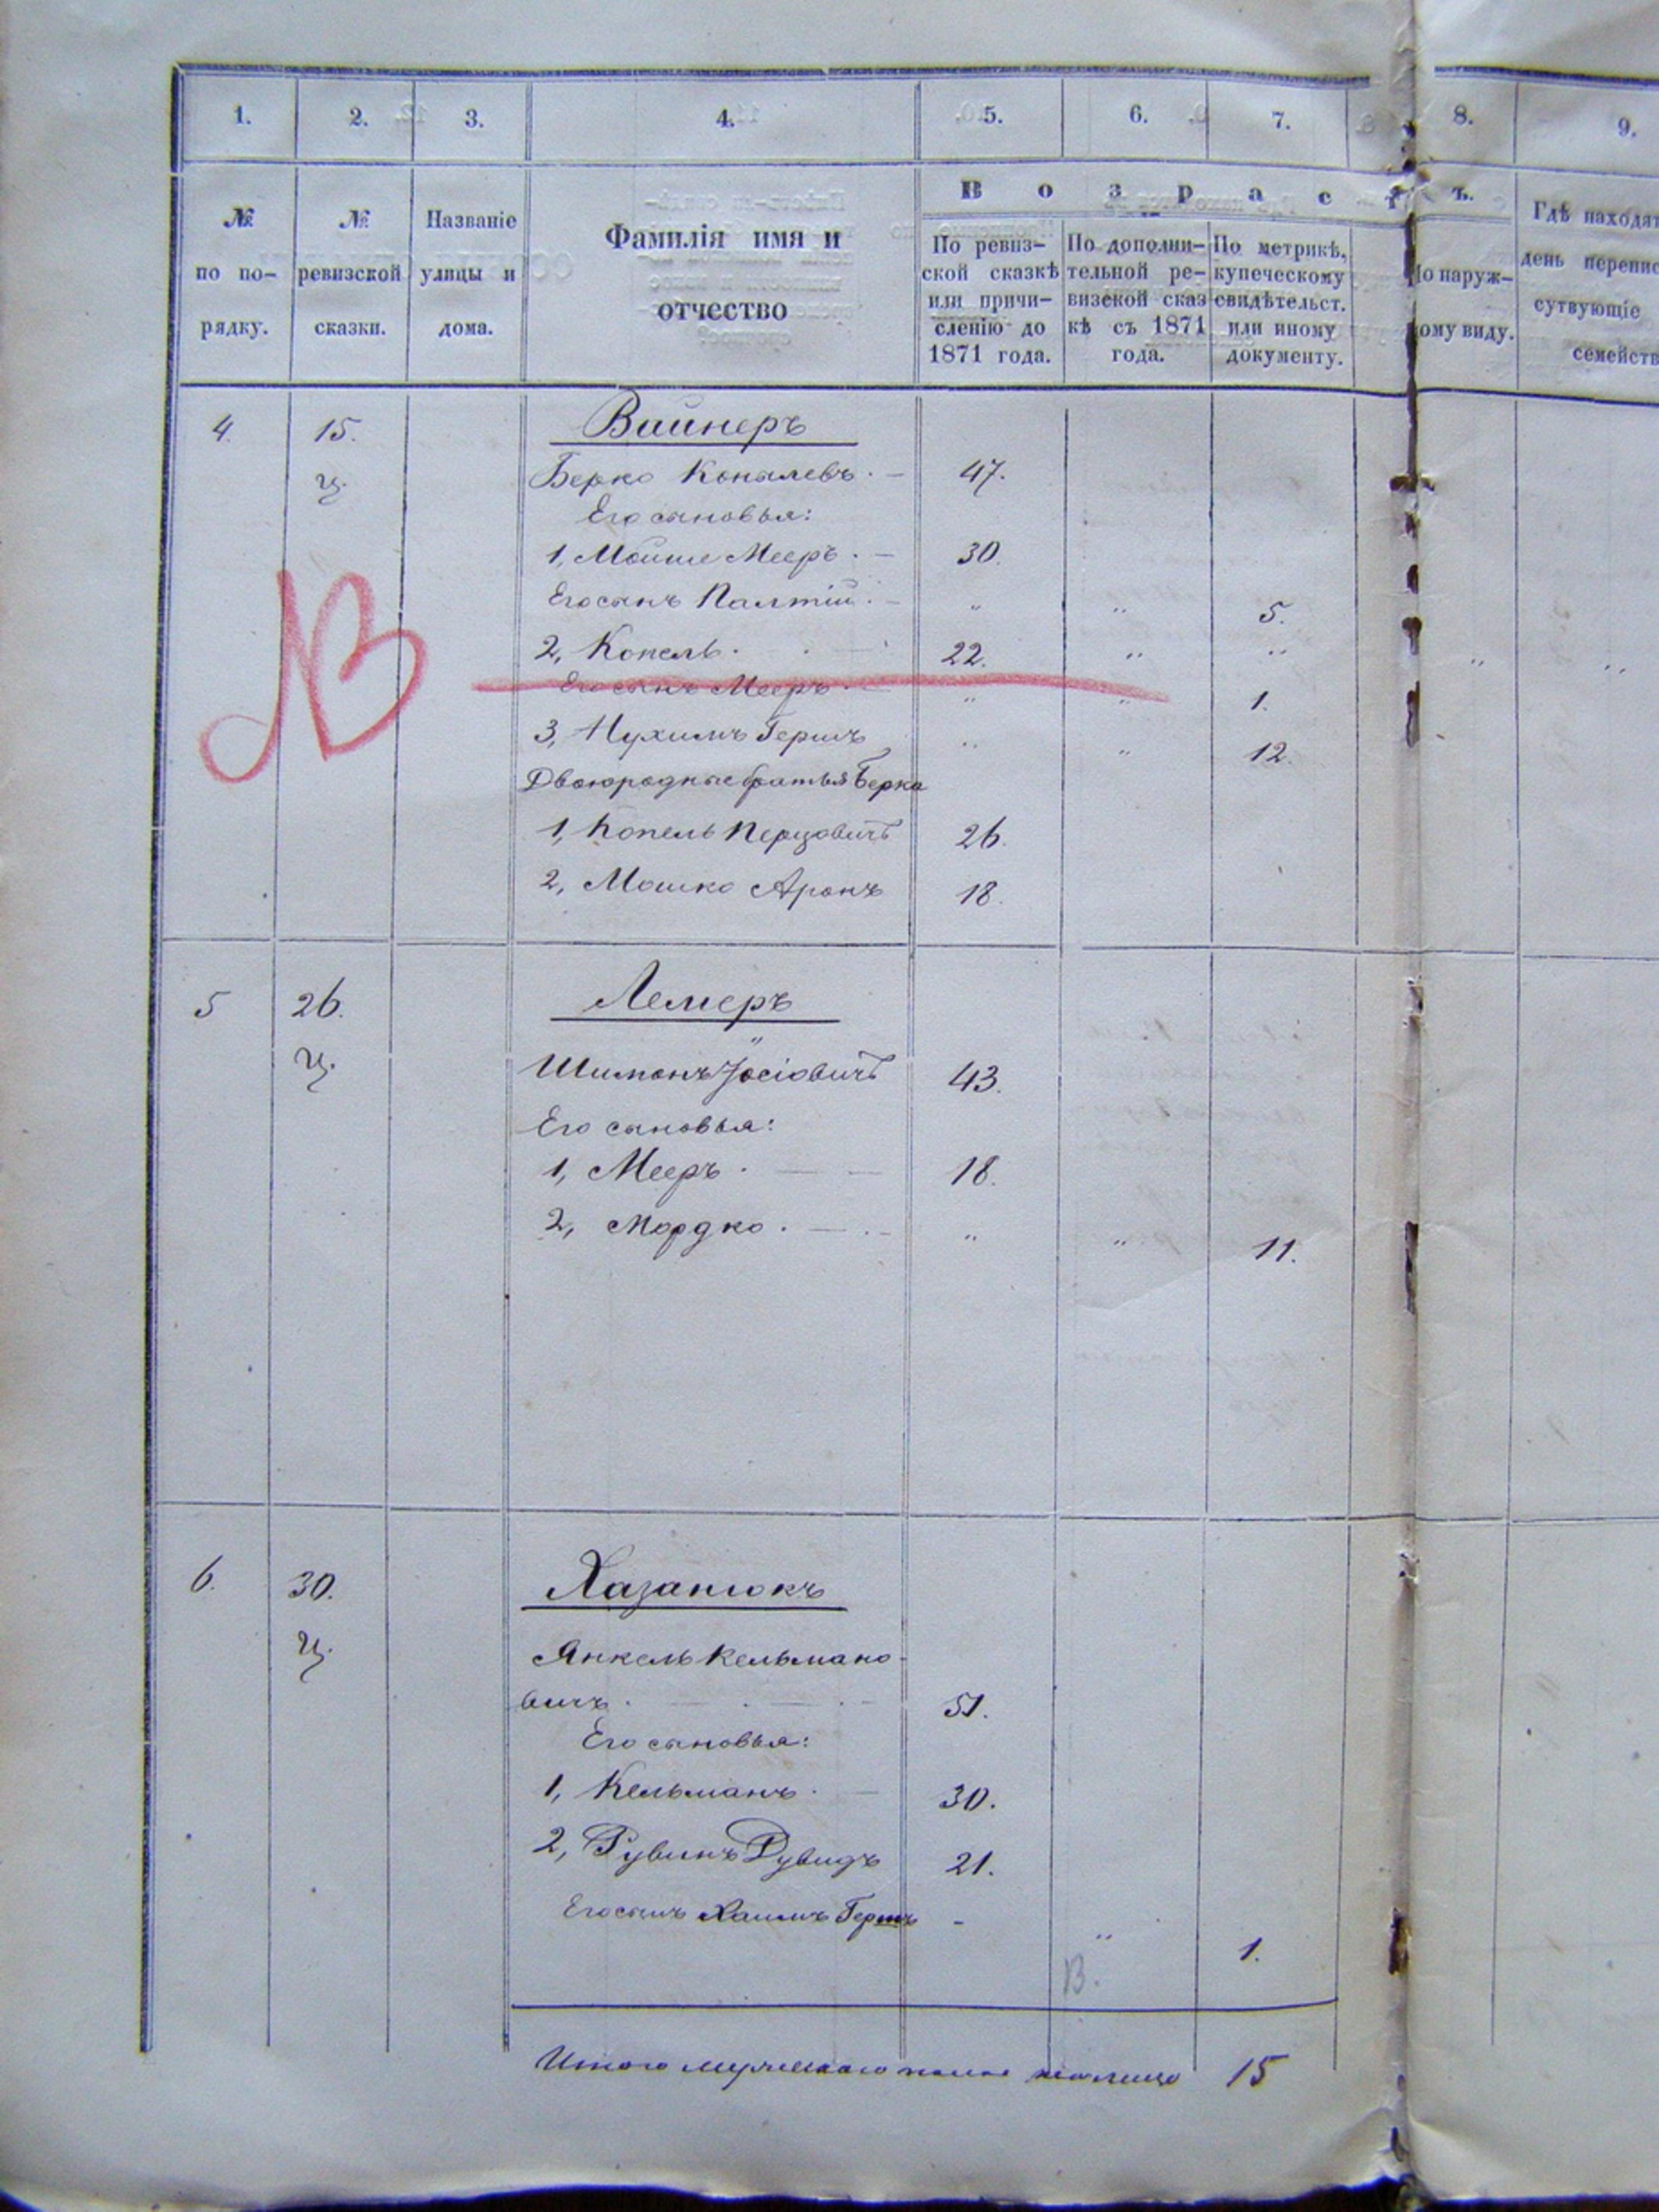 1. 2. 3. 4. 5. 6. 7. 8. 9.
№ по по-рядку.
№ ревизской сказки.
Названіе улицы и дома.
Фамилія имя и отчество
Возрастъ.
По ревиз-
ской сказкѣ
или причи-
сленію до
1871 года.
По дополни-
тельной ре-
визской сказ
кѣ съ 1871
года.
По метрикѣ,
купеческому
свидѣтельст.
или иному
документу.
По наруж-
ному виду.
Гдѣ находят
день перепис
сутвующіе
семейств
4. 15. Вайнеръ
ч. Берко Копелевъ. 47.
Его сыновья:
1, Мойше Мееръ. 30.
Его сынъ Палтій. " " 5.
2, Копель. 22. " " " "
Его сынъ Мееръ. " " 1.
3, Нухимъ Гершъ " " 12.
Двоюродные братья Берка
1, Копель Перцовичъ 26.
2, Мошко Аронъ 18.
NB
5 26. Лемеръ
ч. Шимонъ Іосіовичъ 43.
Его сыновья:
1, Мееръ. 18.
2, Мордко. " " 11.
6. 30. Хазанюкъ
ч. Янкель Кельмано-
вичъ. 51.
Его сыновья:
1, Кельманъ. 30.
2, Рувинъ Дувидъ 21.
Его сынъ Хаимъ Гершъ - " 1.
В.
Итого мужескаго пола налицо 15